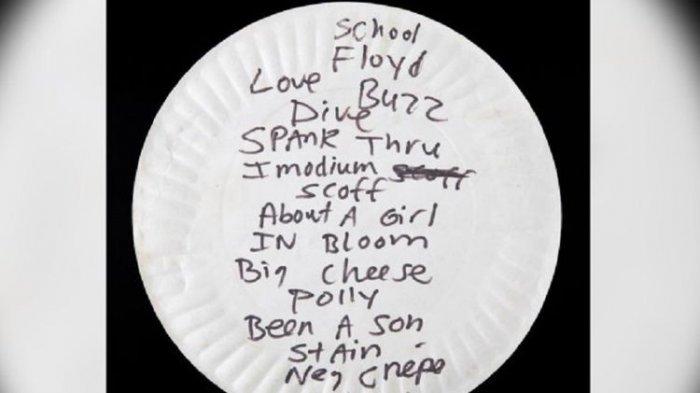 School
Floyd
Love Buzz
Dive
SPANK Thru
Imodium Scoff
Scoff
About A Girl
IN Bloom
Big Cheese
Polly
Been A Son
Stain
Neg Crepe